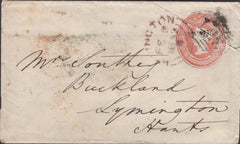 Mrs. Southey
Buckland
Lymington
Hants